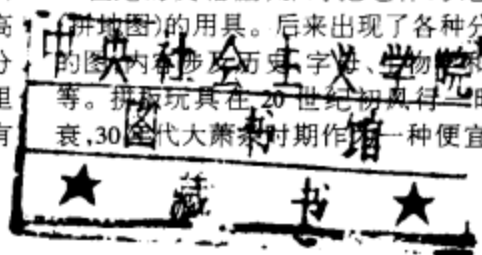 高 (拼地图)的用具。后来出现了各种分
分 的图,内容涉及历史、字母、植物和
里 等。拼板玩具在20世纪初风行一时
有 衰,30年代大萧条时期作为一种便宜
中央社会主义学院
图书馆
★ 藏书 ★